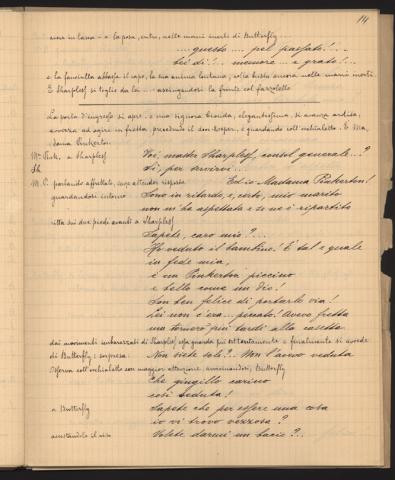 14
ancora in lacca - e la posa, entro, nelle mani inerti di Butterfly ....
.... questo .... pel passato! ..
Sei di! .... memore ... e grato! ...
e la fanciulla abbassa il capo, la sua anima lontana, solo trista ancora nelle mani inerti.
E Sharpless si toglie da lei ... asciugandosi la fronte col fazzoletto
La porta d'ingresso si apre - e una signora bionda, elegantissima, si avanza ardita,
avvezza ad agire in fretta, precedendo il door-keeper, e guardando coll'occhialetto. È Ma-
dama Pinkerton
Mrs. Pink. a Sharpless Voi, master Sharpless, console generale...?
Sh. Sì; per servirvi ....
M. P. parlando affrettato, senza attender risposta Ed io Madama Pinkerton!
guardandosi intorno Sono in ritardo, e, certo, mio marito
non m'ha aspettata e se ne è ripartito
ritta sui due piedi avanti a Sharpless
Sapete, caro mio?...
Ho veduto il bambino! È tal e quale
in fede mia,
è un Pinkerton piccino
e bello come un dio!
Son ben felice di portarlo via!
Lei non c'era... pensate! Avevo fretta
ma tornerò più tardi alla casetta.
dai movimenti imbarazzati di Sharpless essa guarda più attentamente e finalmente si avvede
di Butterfly: sorpresa: Non siete solo?.. Non l'avevo veduta
Osserva coll'occhialetto con maggior attenzione avvicinandosi, Butterfly
Che gingillo carino
così seduta!
a Butterfly Sapete che per essere una cosa
io vi trovo vezzosa?
accostandole il viso Volete darmi un bacio?..